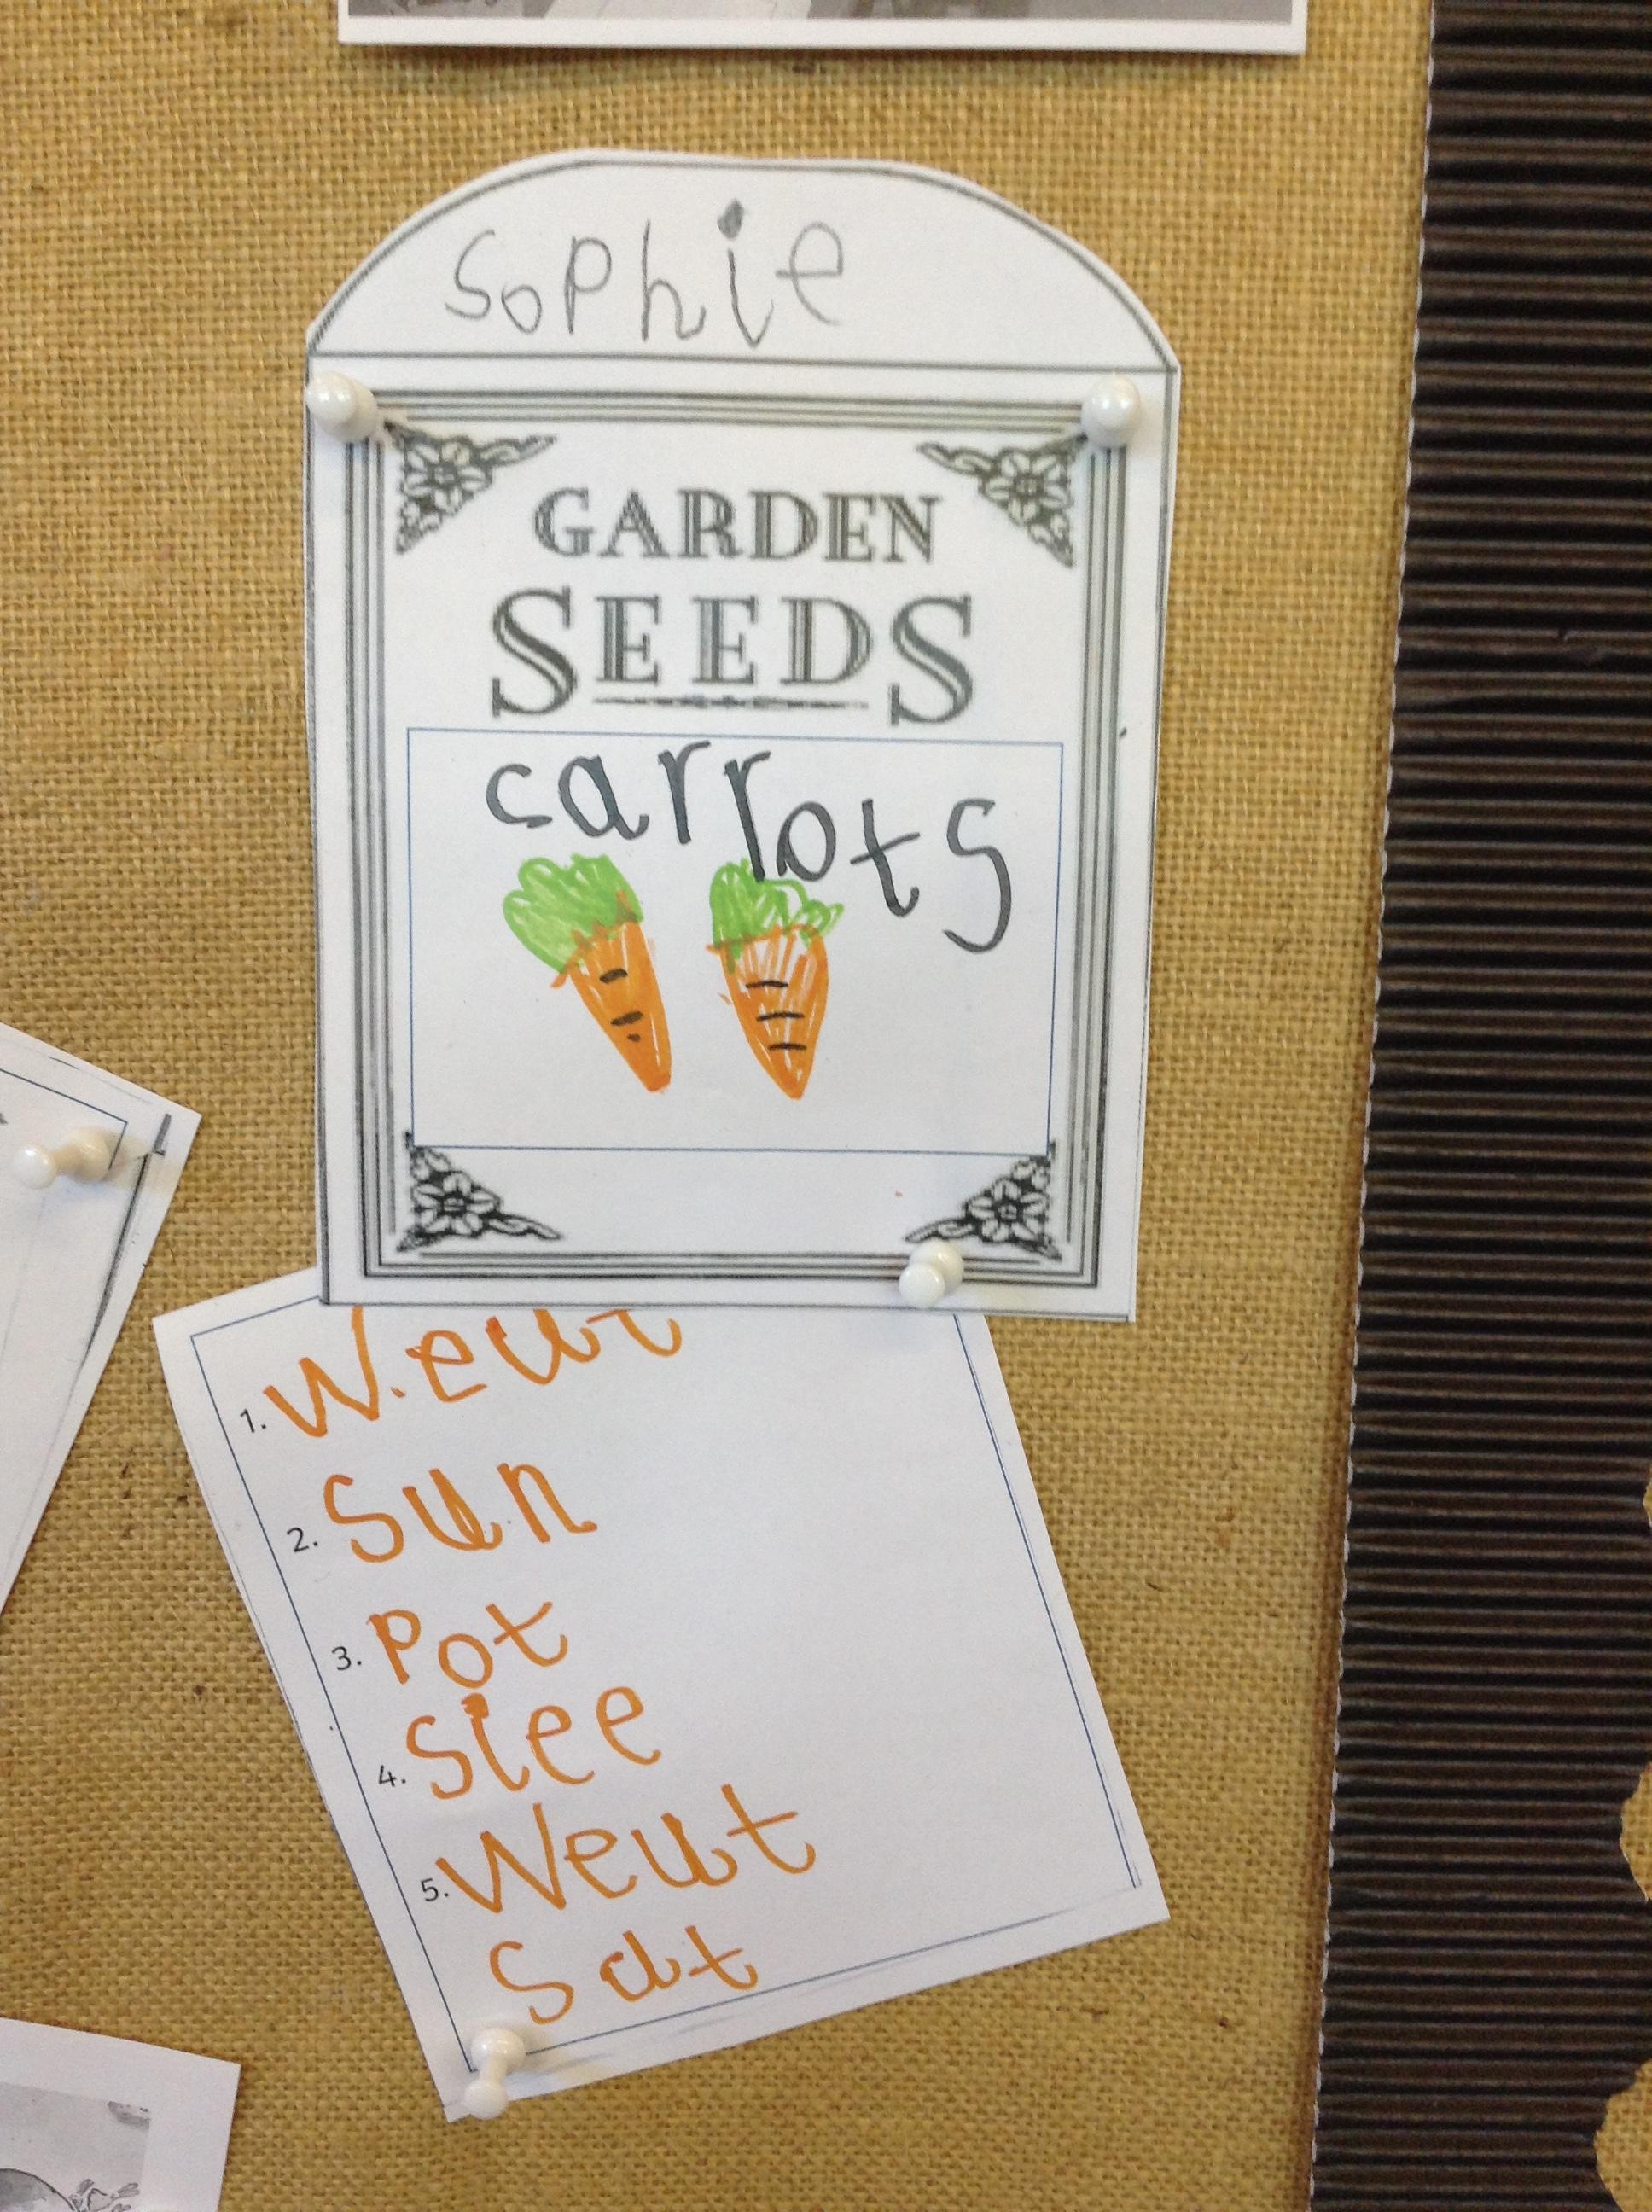 Sophie
GARDEN
SEEDS
carrots
1. Weut
2. Sun
3. Pot
4. Siee
5. Weut
Sat